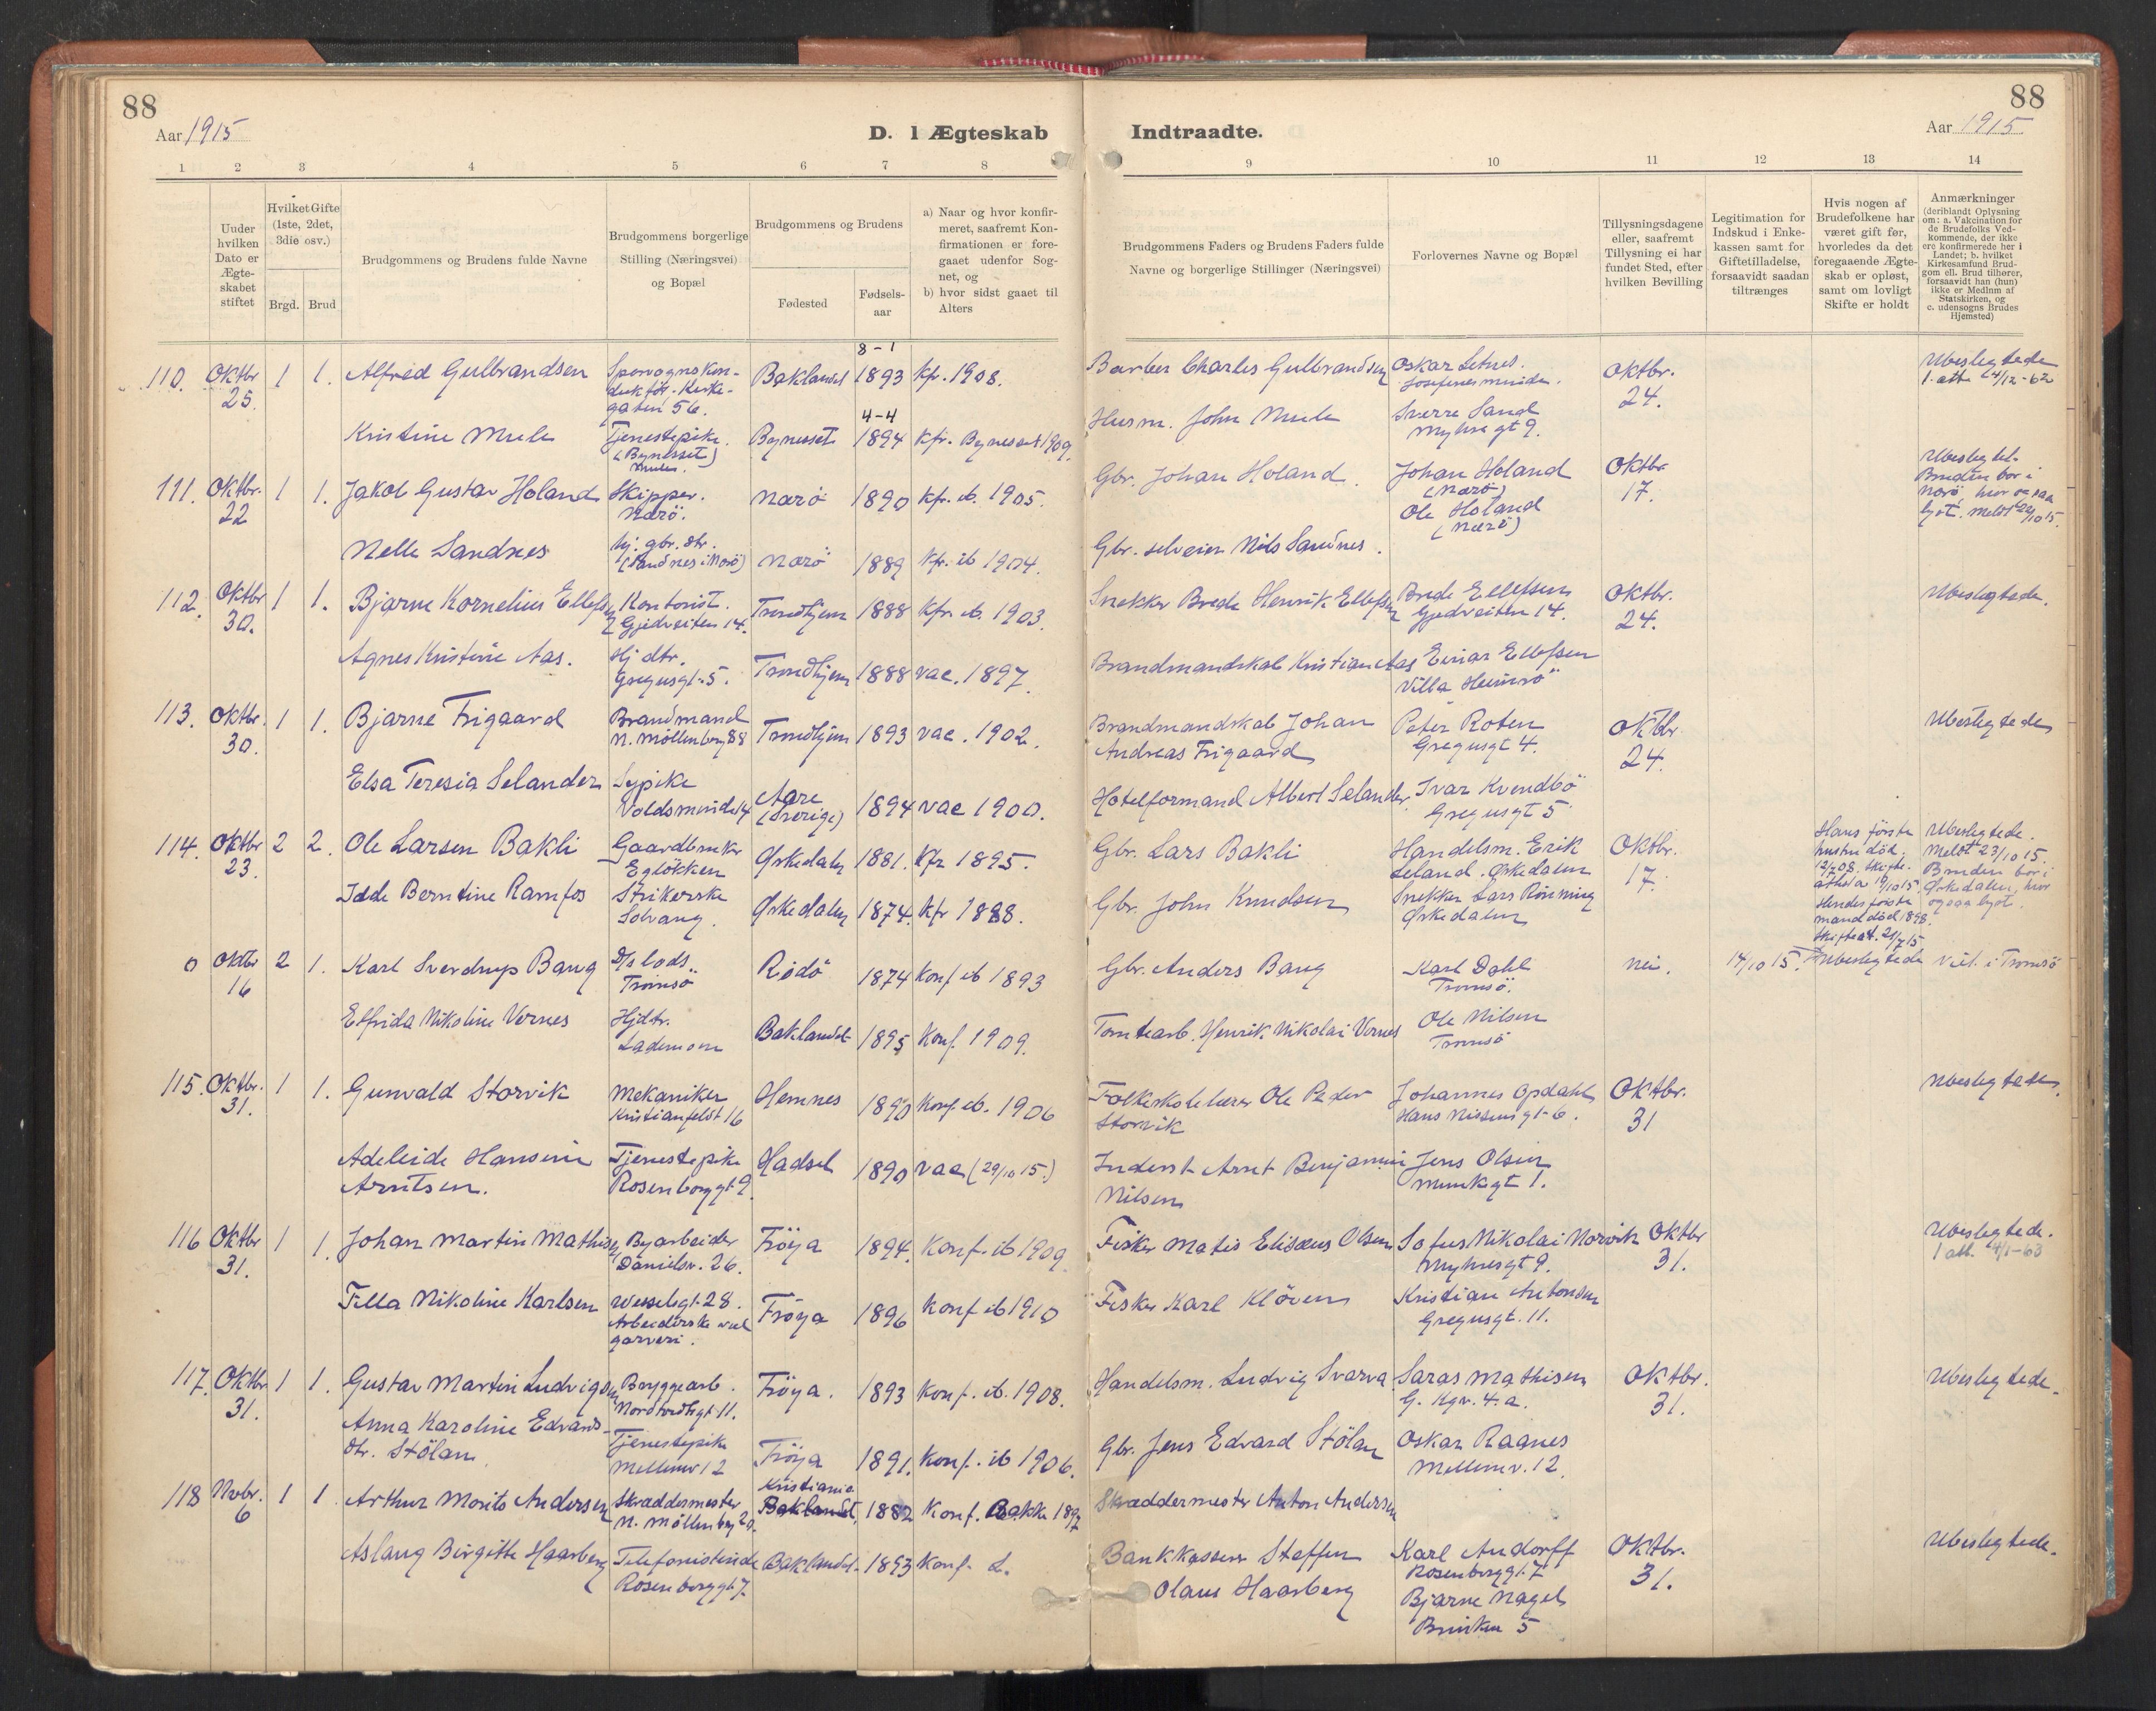 88
88
Aar 1915
D. I Ægteskab
Indtraadte.
Aar 1915
1 2 3 4 5 6 7 8
9 10 11 12 13 14
Under hvilken Dato er Ægte-skabet stiftet
Hvilket Gifte (1ste, 2det, 3die osv.)
Brgd. Brud
Brudgommens og Brudens fulde Navne
Brudgommens borgerlige Stilling (Næringsvei) og Bopæl
Brudgommens og Brudens
Fødested
Fødsels-aar
a) Naar og hvor konfir-meret, saafremt Kon-firmationen er fore-gaaet udenfor Sog-net, og
b) hvor sidst gaaet til Alters
Brudgommens Faders og Brudens Faders fulde Navne og borgerlige Stillinger (Næringsvei)
Forlovernes Navne og Bopæl
Tillysningsdagene eller, saafremt Tillysning ei har fundet Sted, efter hvilken Bevilling
Legitimation for Indskud i Enke-kassen samt for Giftetilladelse, forsaavidt saadan tiltrænges
Hvis nogen af Brudefolkene har været gift før, hvorledes da det foregaaende Ægte-skab er opløst, samt om lovligt Skifte er holdt
Anmærkninger (deriblandt Oplysning om: a. Vakcination for de Brudefolks Ved-kommende, der ikke ere konfirmerede her i Landet; b. hvilket Kirkesamfund Brud-gom ell. Brud tilhører, forsaavidt han (hun) ikke er Medlm af Statskirken, og c. udensogns Brudes Hjemsted)
110. Oktbr 25. 1 1. Alfred Gulbrandsen Sporvognskon-duktør. Kirke-gaten 56. Baklandet 8-1 1893 Kfr. 1908. Barber Charles Gulbrandsen Oskar Letnes. Oktbr. 24. Ubeslegtede 1 att 4/12-62
Kristine Mule Tjenestepike. (Bynesset) Mulen. Bynesset 4-4 1894 Kfr. Bynesset 1909. Husm. John Mule Sverre Sand Myhresgt 9.
111. Oktbr. 22 1 1. Jakob Gustav Holand Skipper. Nærö. Nærö 1890 Kfr. ib. 1905. Gbr. Johan Holand. Johan Holand (Nærö) Ole Holand (Nærö) Oktbr 17. Ubeslegtet. Bruden bor i Nærö, hvor ogsaa lyst. Meldt 22/10 15.
Nelle Sandnes hj. gbr. dtr. (Sandnes i Nærö) Nærö 1889 Kfr. ib 1904. Gbr. selveier Nils Sandnes.
112. Oktbr 30. 1 1. Bjarne Kornelius Ellefsen Kontorist. Gjedveiten 14. Trondhjem 1888 Kfr. ib. 1903. Snekker Brede Henrik Ellefsen Brede Ellefsen Gjedveiten 14. Oktbr. 24. Ubeslegtede.
Agnes Kristine Aas. Hj dtr. Gregusgt. 5. Trondhjem 1888 vac. 1897. Brandmandskab Kristian Aas Einar Ellefsen Villa Heimrö
113. Oktbr. 30. 1 1. Bjarne Frigaard Brandmand N. Möllenberg 88 Trondhjem 1893 vac. 1902. Brandmandskab Johan Andreas Frigaard Peter Roten Gregusgt 4. Oktbr. 24. Ubeslegtede
Elsa Teresia Selander Sypike Voldsminde 14 Aare (Sverige) 1894 vac 1900. Hotelformand Albert Selander. Ivar Kvendbö Gregusgt 5
114. Oktbr 23. 2 2. Ole Larsen Bakli Gaardbruker Eglökken Ørkedalen 1881. Kfr 1895. Gbr. Lars Bakli Handelsm. Erik Leland. Ørkedalen Oktbr. 17. Hans förste hustru död. 12/7 08. Skifte-attest a 19/10 15. Hendes förste mand död 1898. Skifteat. 21/7 15 Ubeslegtede. Meldt 23/10 15. Bruden bor i Ørkedalen, hvor ogsaa lyst.
Idde Berntine Ramfos Strikerske Solvang. Ørkedalen 1874. Kfr 1888. Gbr. John Knudsen Snekker Lars Rönning Ørkedalen
0 Oktbr 16 2 1. Karl Sverdrup Bang D/s lods. Tromsö Rödö 1874 Konf ib 1893 Gbr. Anders Bang Karl Dahl Tromsö. Nei. 14/10 15. Ubeslegtede Viet i Tromsö
Elfrida Nikoline Vernes Hjdtr. Lademoen Baklandet 1895 Konf. 1909. Tomtearb. Henrik Nikolai Vernes Ole Nilsen Tromsö
115. Oktbr. 31. 1 1. Gunvald Storvik Mekaniker Kristianfeldt 16 Hemnes 1890 Konf. ib. 1906 Folkeskolelærer Ole Peder Storvik Johannes Opdahl Hans Nissensgt. 6. Oktbr. 31 Ubeslegtede.
Adeleide Hansine Arntsen. Tjenestepike Rosenborggt. 9. Hadsel 1890 vac (29/10 15.) Inderst Arnt Benjamin Nilsen Jens Olsen Munkgt 1.
116 Oktbr 31. 1 1. Johan Martin Mathisen Byarbeider Danielsv. 26. Fröya 1894. Konf. ib 1909. Fisker Matis Elisæus Olsen Sofus Nikolai Norvik Myhresgt 9. Oktbr 31. Ubeslegtede. 1 att. 4/1-63
Filla Nikoline Karlsen Wesselsgt. 28. Arbeiderske ved garveri. Fröya 1896 Konf ib 1910 Fisker Karl Klöven Kristian Antonsen Gregusgt. 11.
117. Oktbr 31. 1 1. Gustav Martin Ludvigsen Bryggearb. Nordtvedtsgt. 11. Fröya. 1893 Konf. ib. 1908. Handelsm. Ludvig Svarva Saras Mathisen G. Kgv. 4. a. Oktbr. 31. Ubeslegtede.
Anna Karoline Edvards-dtr. Stölan Tjenestepike Mellemv 12 Fröya 1891. Konf. ib 1906. Gbr. Jens Edvard Stölan Oskar Raanes Mellemv. 12.
118 Novbr. 6 1 1 Arthur Morits Andersen Skræddermester N. Möllenberg 20. Kristiania Baklandet. 1882 Konf. Bakke 1897 Skræddermester Anton Andersen
Aslaug Birgitte Haarberg Telefonistinde Rosenborggt 7. Baklandet. 1893 Konf. L. Bankkasserer Steffen Olaus Haarberg Karl Andorff Rosenborggt. 7 Bjarne Nagel Brinken 5 Oktbr. 31. Ubeslegtede.